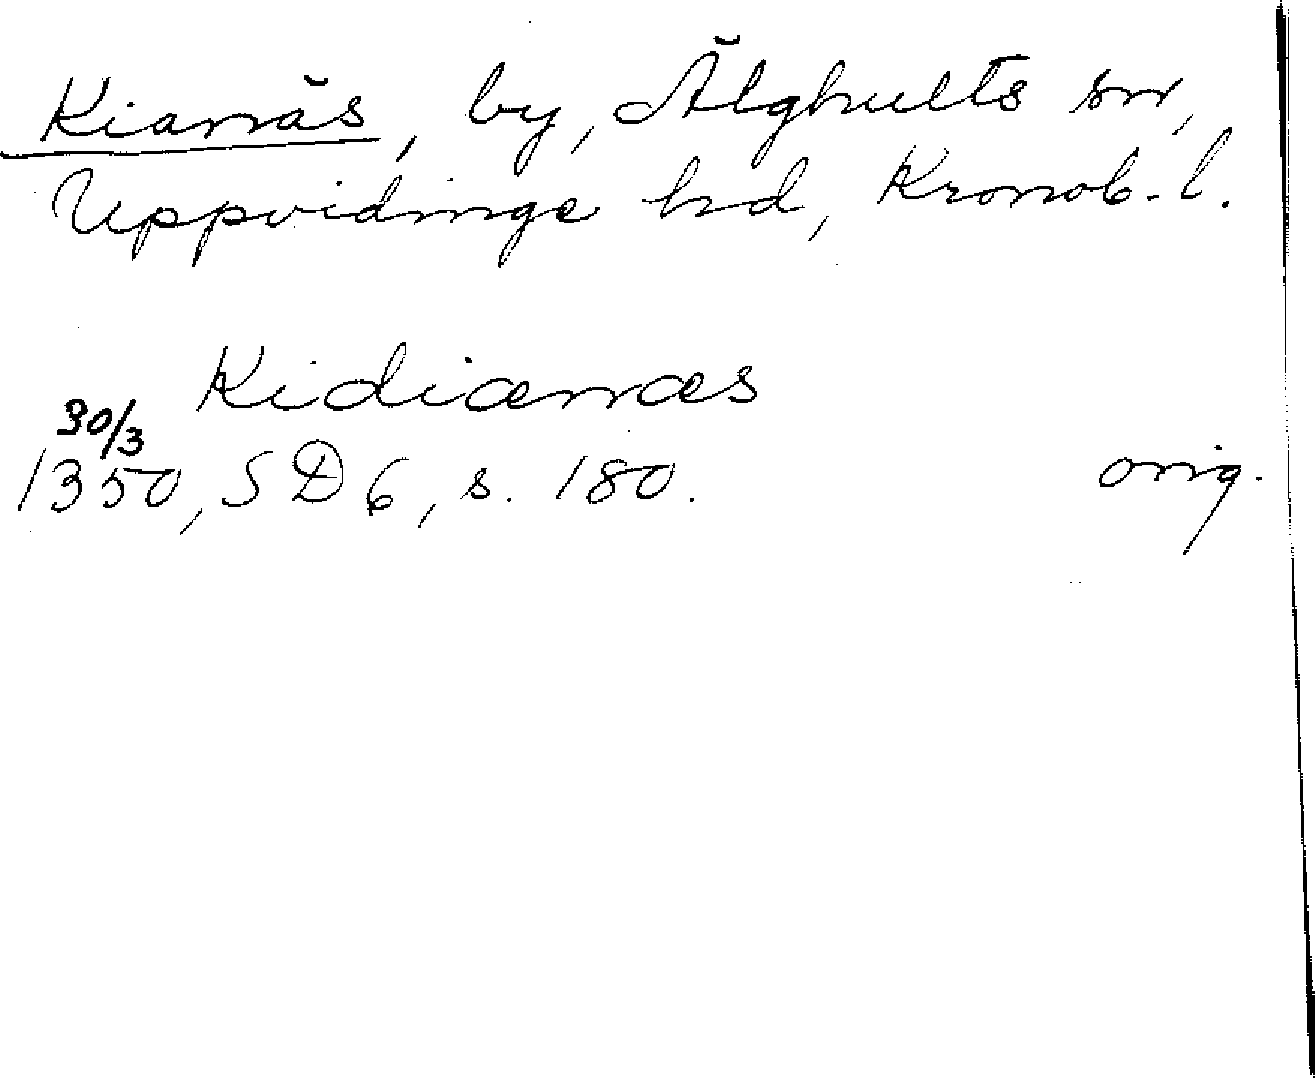 Kianäs, by, Älghults sn,
Uppvidinge hd, Kronob. l.
Kidianæs
30/3
1350, SD 6, s. 180. orig.